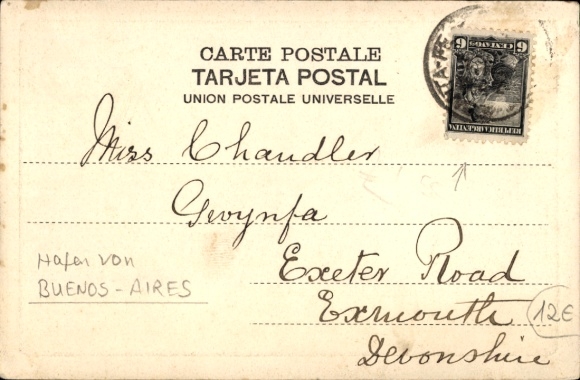 CARTE POSTALE
TARJETA POSTAL
UNION POSTALE UNIVERSELLE
6 CENTAVOS 6
REPUBLICA ARGENTINA
Miss Chandler
Gwynfa
Exeter Road
Exmouth
Devonshire
Hafen von
BUENOS-AIRES
12E